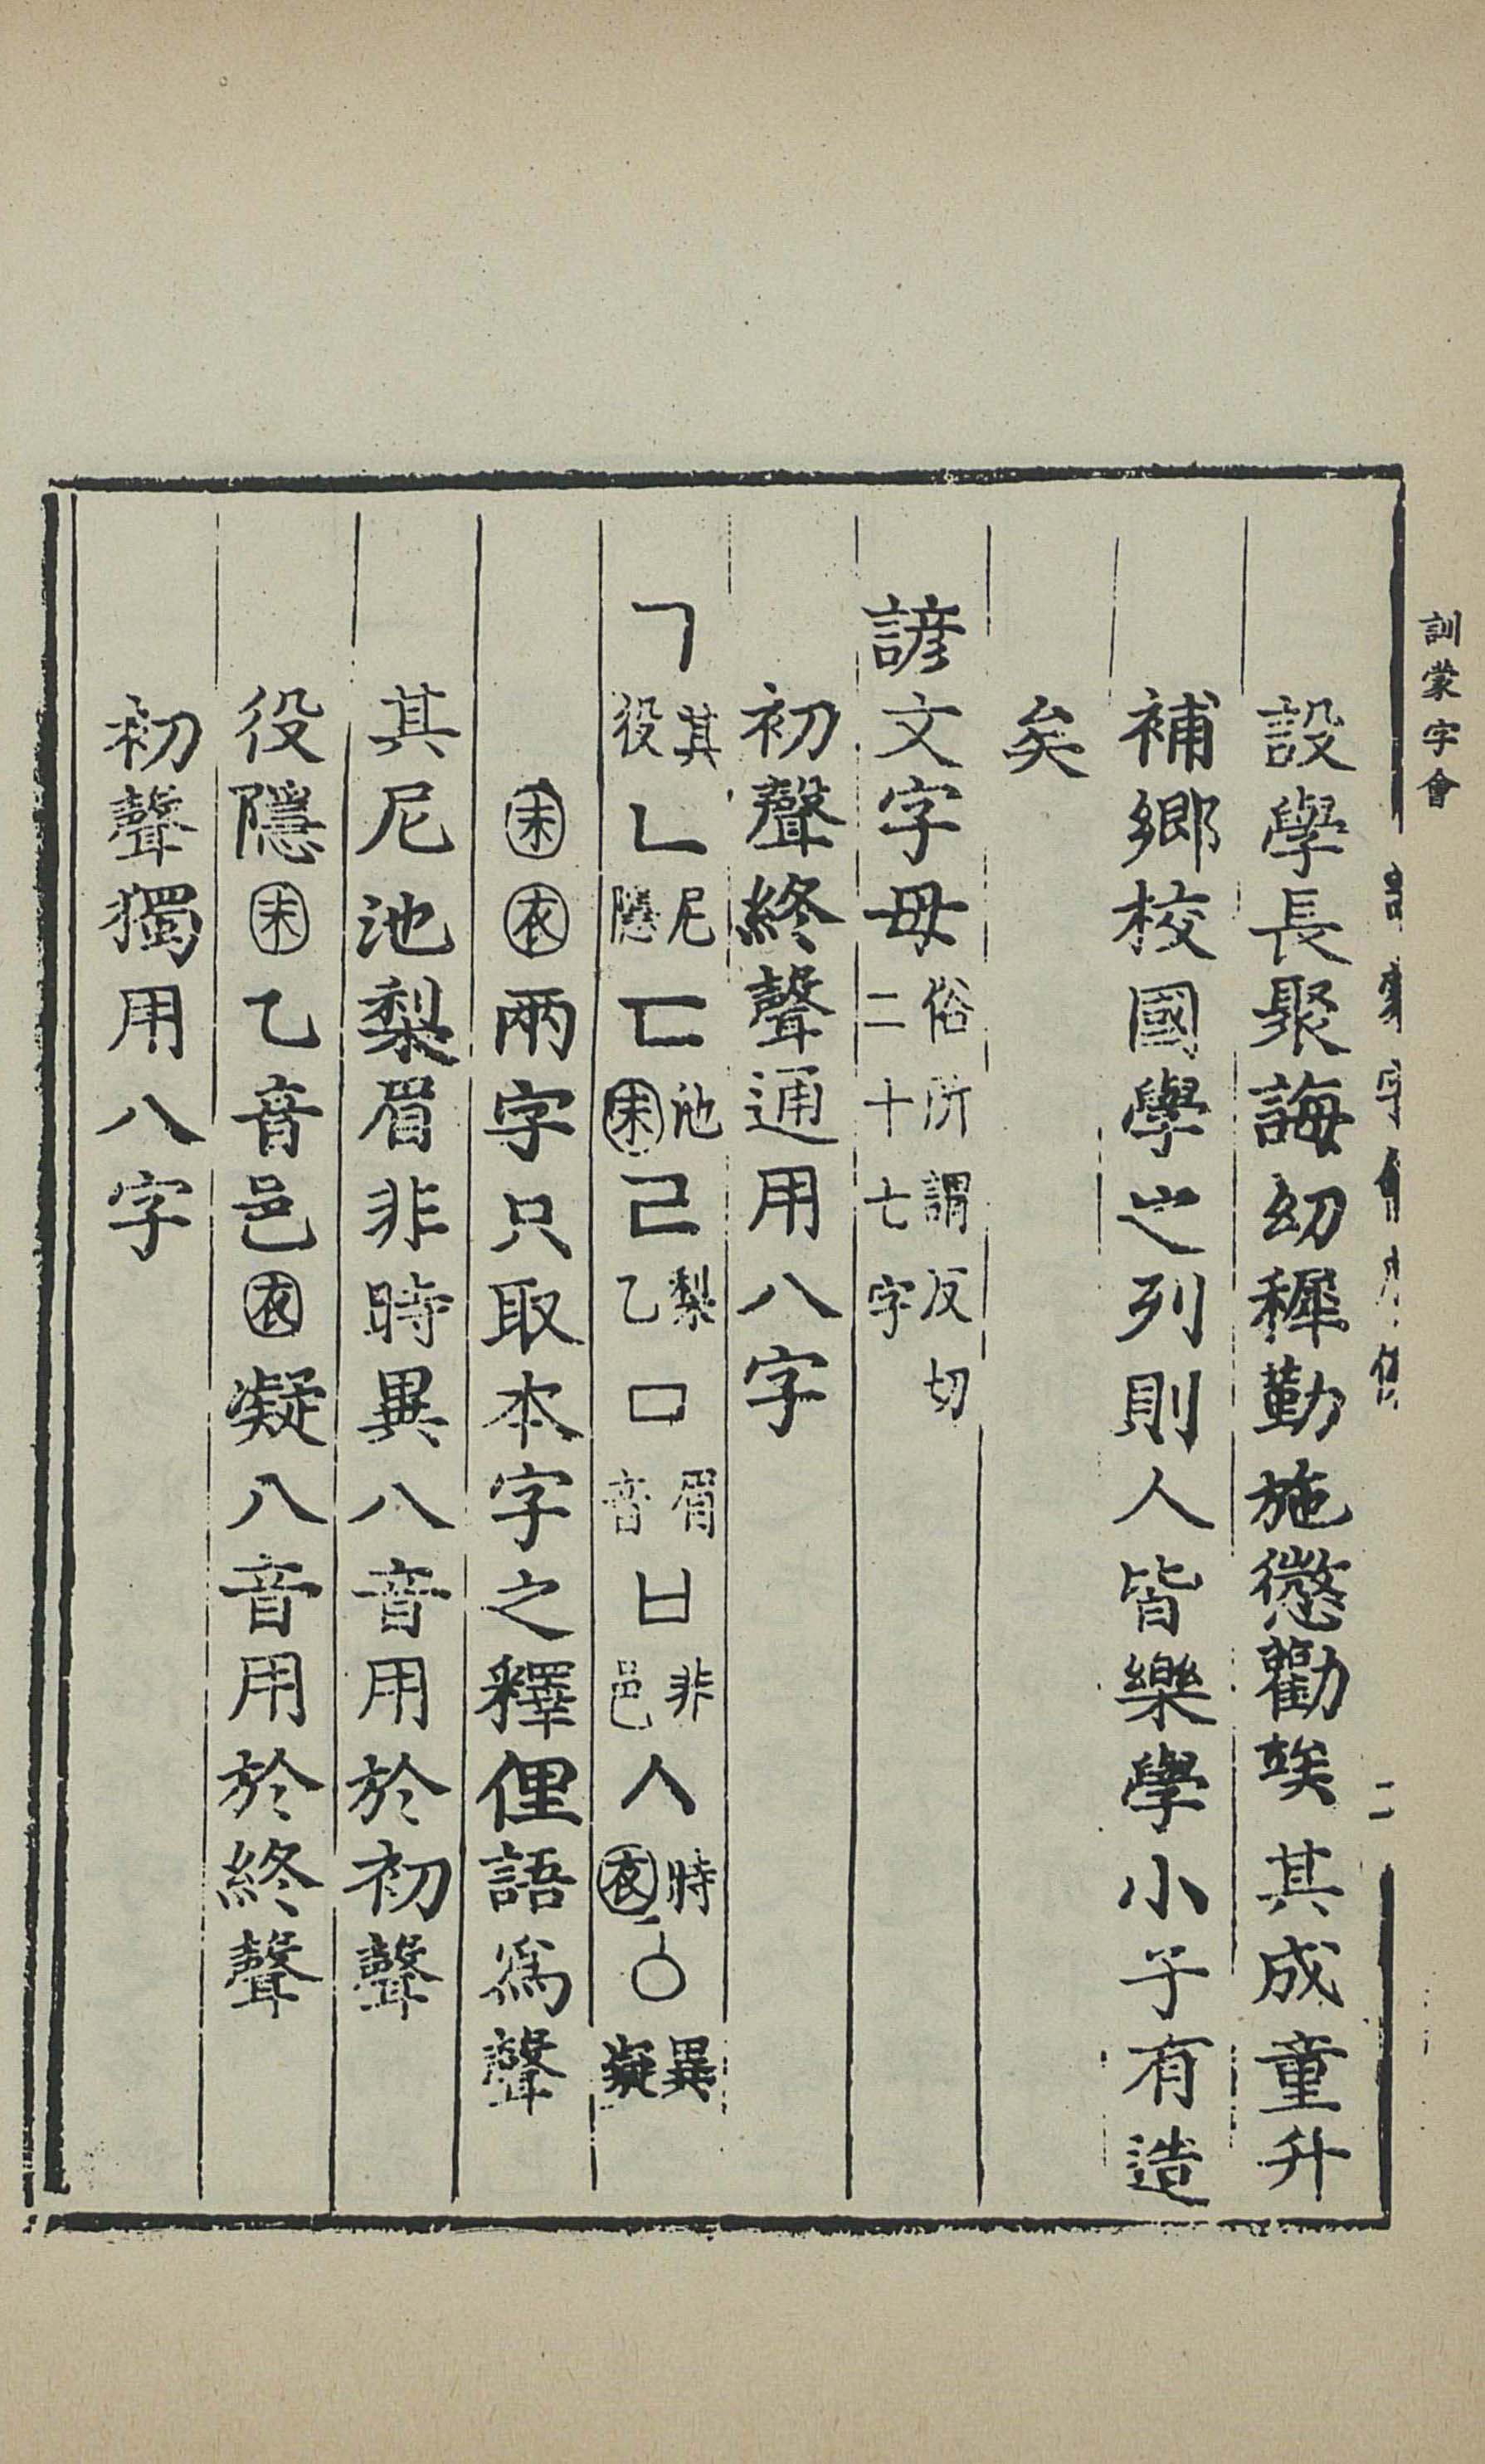 訓蒙字會
訓蒙字會
二
設學長聚誨幼穉勤施懲勸竢其成童升
補鄉校國學之列則人皆樂學小子有造
矣
諺文字母俗所謂反切二十七字
初聲終聲通用八字
ㄱ其役ㄴ尼隱ㄷ池㊍ㄹ梨乙ㅁ眉音ㅂ非邑ㅅ時衣ㆁ異凝
末衣兩字只取本字之釋俚語爲聲
其尼池梨眉非時異八音用於初聲
役隱末乙音邑衣凝八音用於終聲
初聲獨用八字